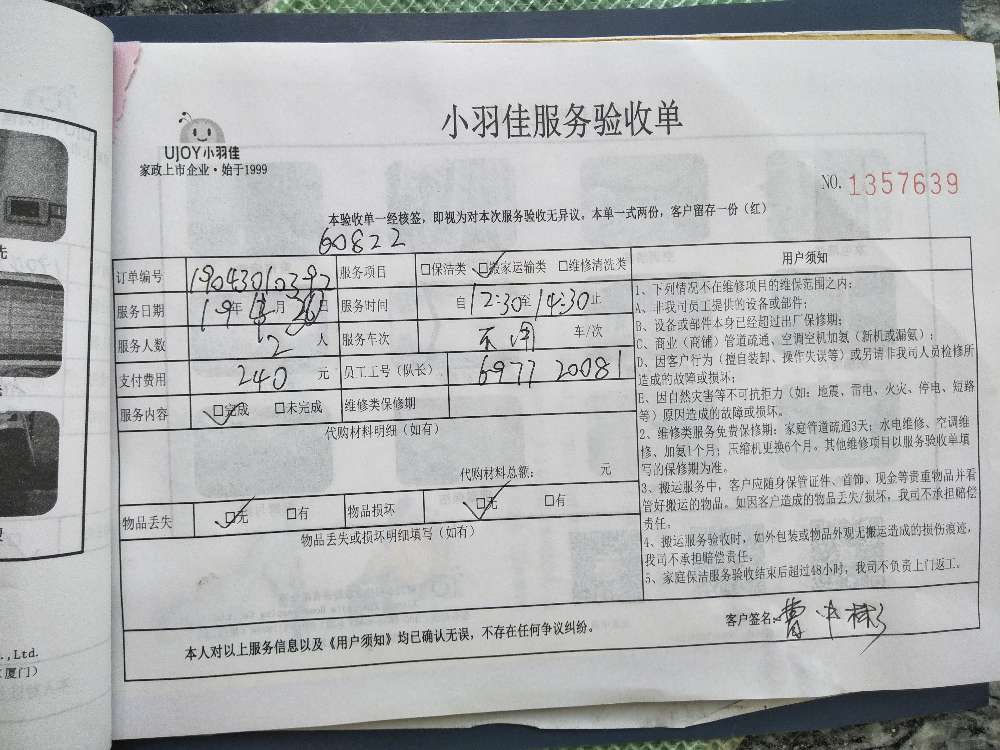 小羽佳服务验收单
UJOY小羽佳
家政上市企业·始于1999
NO. 1357639
本验收单一经核签，即视为对本次服务验收无异议。本单一式两份，客户留存一份（红）
60822
订单编号 19043010392 服务项目 □保洁类 □搬家运输类 □维修清洗类
服务日期 19年 月 日 服务时间 自12:30至14:30止
服务人数 2 人 服务车次 不用 车/次
支付费用 240 元 员工工号（队长） 6977 20081
服务内容 □完成 □未完成 维修类保修期
代购材料明细（如有）
代购材料总额： 元
物品丢失 □无 □有 物品损坏 □无 □有
物品丢失或损坏明细填写（如有）
用户须知
1、下列情况不在维修项目的维保范围之内：
A、非我司员工提供的设备或部件；
B、设备或部件本身已经超过出厂保修期；
C、商业（商铺）管道疏通、空调空机加氨（新机或漏氨）；
D、因客户行为（擅自装卸、操作失误等）或另请非我司人员检修所
造成的故障或损坏；
E、因自然灾害等不可抗拒力（如：地震、雷电、火灾、停电、短路
等）原因造成的故障或损坏。
2、维修类服务免费保修期：家庭管道疏通3天；水电维修、空调维
修、加氨1个月；压缩机更换6个月。其他维修项目以服务验收单填
写的保修期为准。
3、搬运服务中，客户应随身保管证件、首饰、现金等贵重物品并看
管好搬运的物品。如因客户造成的物品丢失/损坏，我司不承担赔偿
责任。
4、搬运服务验收时，如外包装或物品外观无搬运造成的损伤痕迹，
我司不承担赔偿责任。
5、家庭保洁服务验收结束后超过48小时，我司不负责上门返工。
本人对以上服务信息以及《用户须知》均已确认无误，不存在任何争议纠纷。
客户签名：
.,Ltd.
厦门）